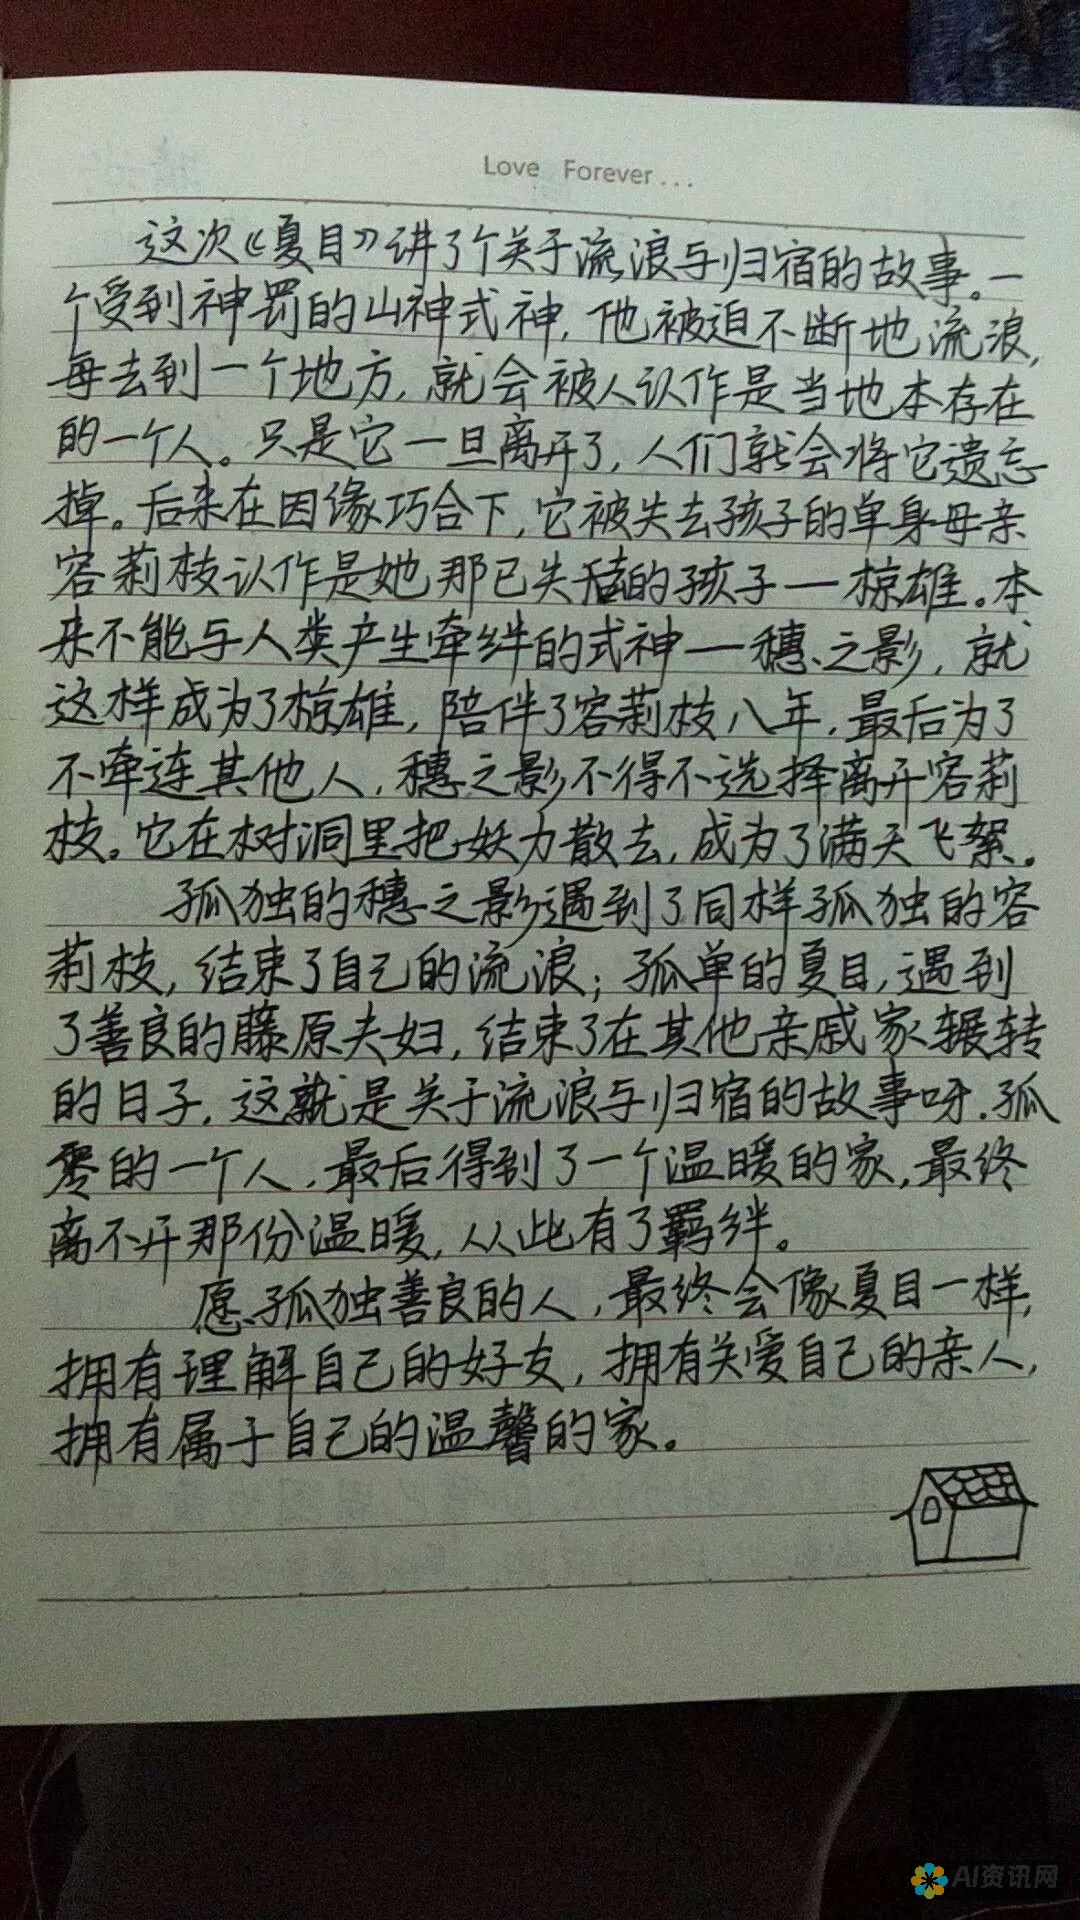 Love Forever...
这次《夏目》讲了个关于流浪与归宿的故事。一
个受到神罚的山神式神，他被迫不断地流浪，
每去到一个地方，就会被人认作是当地本存在
的一个人。只是它一旦离开了，人们就会将它遗忘
掉。后来在因缘巧合下，它被失去孩子的单身母亲
容莉枝认作是她那已失踪的孩子—椋雄。本
来不能与人类产生牵绊的式神—穗之影，就
这样成为了椋雄，陪伴了容莉枝八年，最后为了
不牵连其他人，穗之影不得不选择离开容莉
枝。它在树洞里把妖力散去，成为了满天飞絮。
孤独的穗之影遇到了同样孤独的容
莉枝，结束了自己的流浪；孤单的夏目，遇到
了善良的藤原夫妇，结束了在其他亲戚家辗转
的日子，这就是关于流浪与归宿的故事呀．孤
零的一个人，最后得到了一个温暖的家，最终
离不开那份温暖，从此有了羁绊。
愿孤独善良的人，最终会像夏目一样，
拥有理解自己的好友，拥有关爱自己的亲人，
拥有属于自己的温馨的家。
AI资讯网